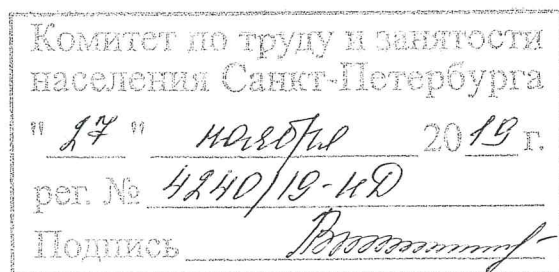 Комитет по труду и занятости
населения Санкт-Петербурга
" 27 " ноября 2019 г.
рег. № 4240/19-КД
Подпись